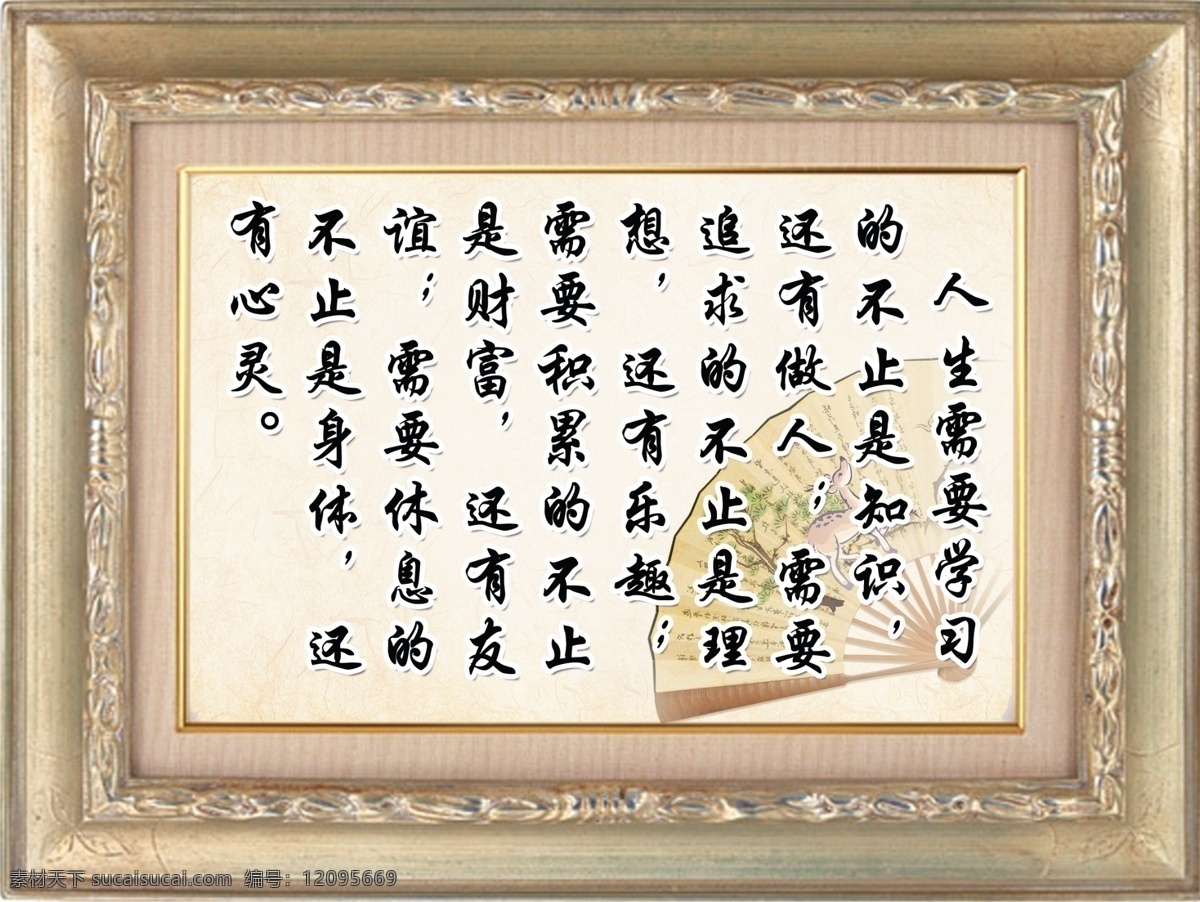 人生需要学习
的不止是知识，
还有做人；需要
追求的不止是理
想，还有乐趣；
需要积累的不止
是财富，还有友
谊；需要休息的
不止是身体，还
有心灵。
素材天下 sucaisucai.com 编号：12095669